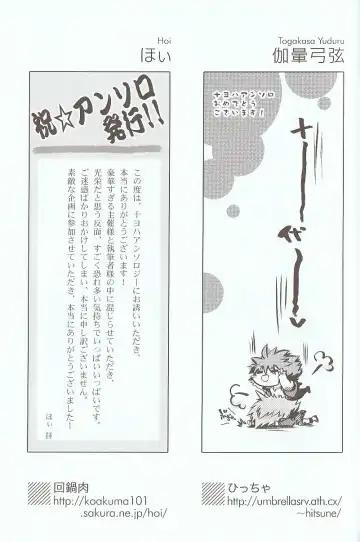 Togakasa Yuduru
伽暈弓弦
十ヨハアンソロ
おめでとう
ございます!
十ーーー代ーーー
ひっちゃ
http://umbrellasrv.ath.cx/
~hitsune/
Hoi
ほぃ
祝☆アンソロ
発行!!
この度は、十ヨハアンソロジーにお誘いいただき、
本当にありがとうございます!
豪華すぎる主催様と執筆者様の中に混じらせていただき、
光栄だと思う反面、すごく恐れ多い気持ちでいっぱいいっぱいです。
ご迷惑ばかりおかけしてしまい、本当に申し訳ございません。
素敵な企画に参加させていただき、本当にありがとうございましたー
ほぃ 拝
回鍋肉
http://koakuma101
.sakura.ne.jp/hoi/